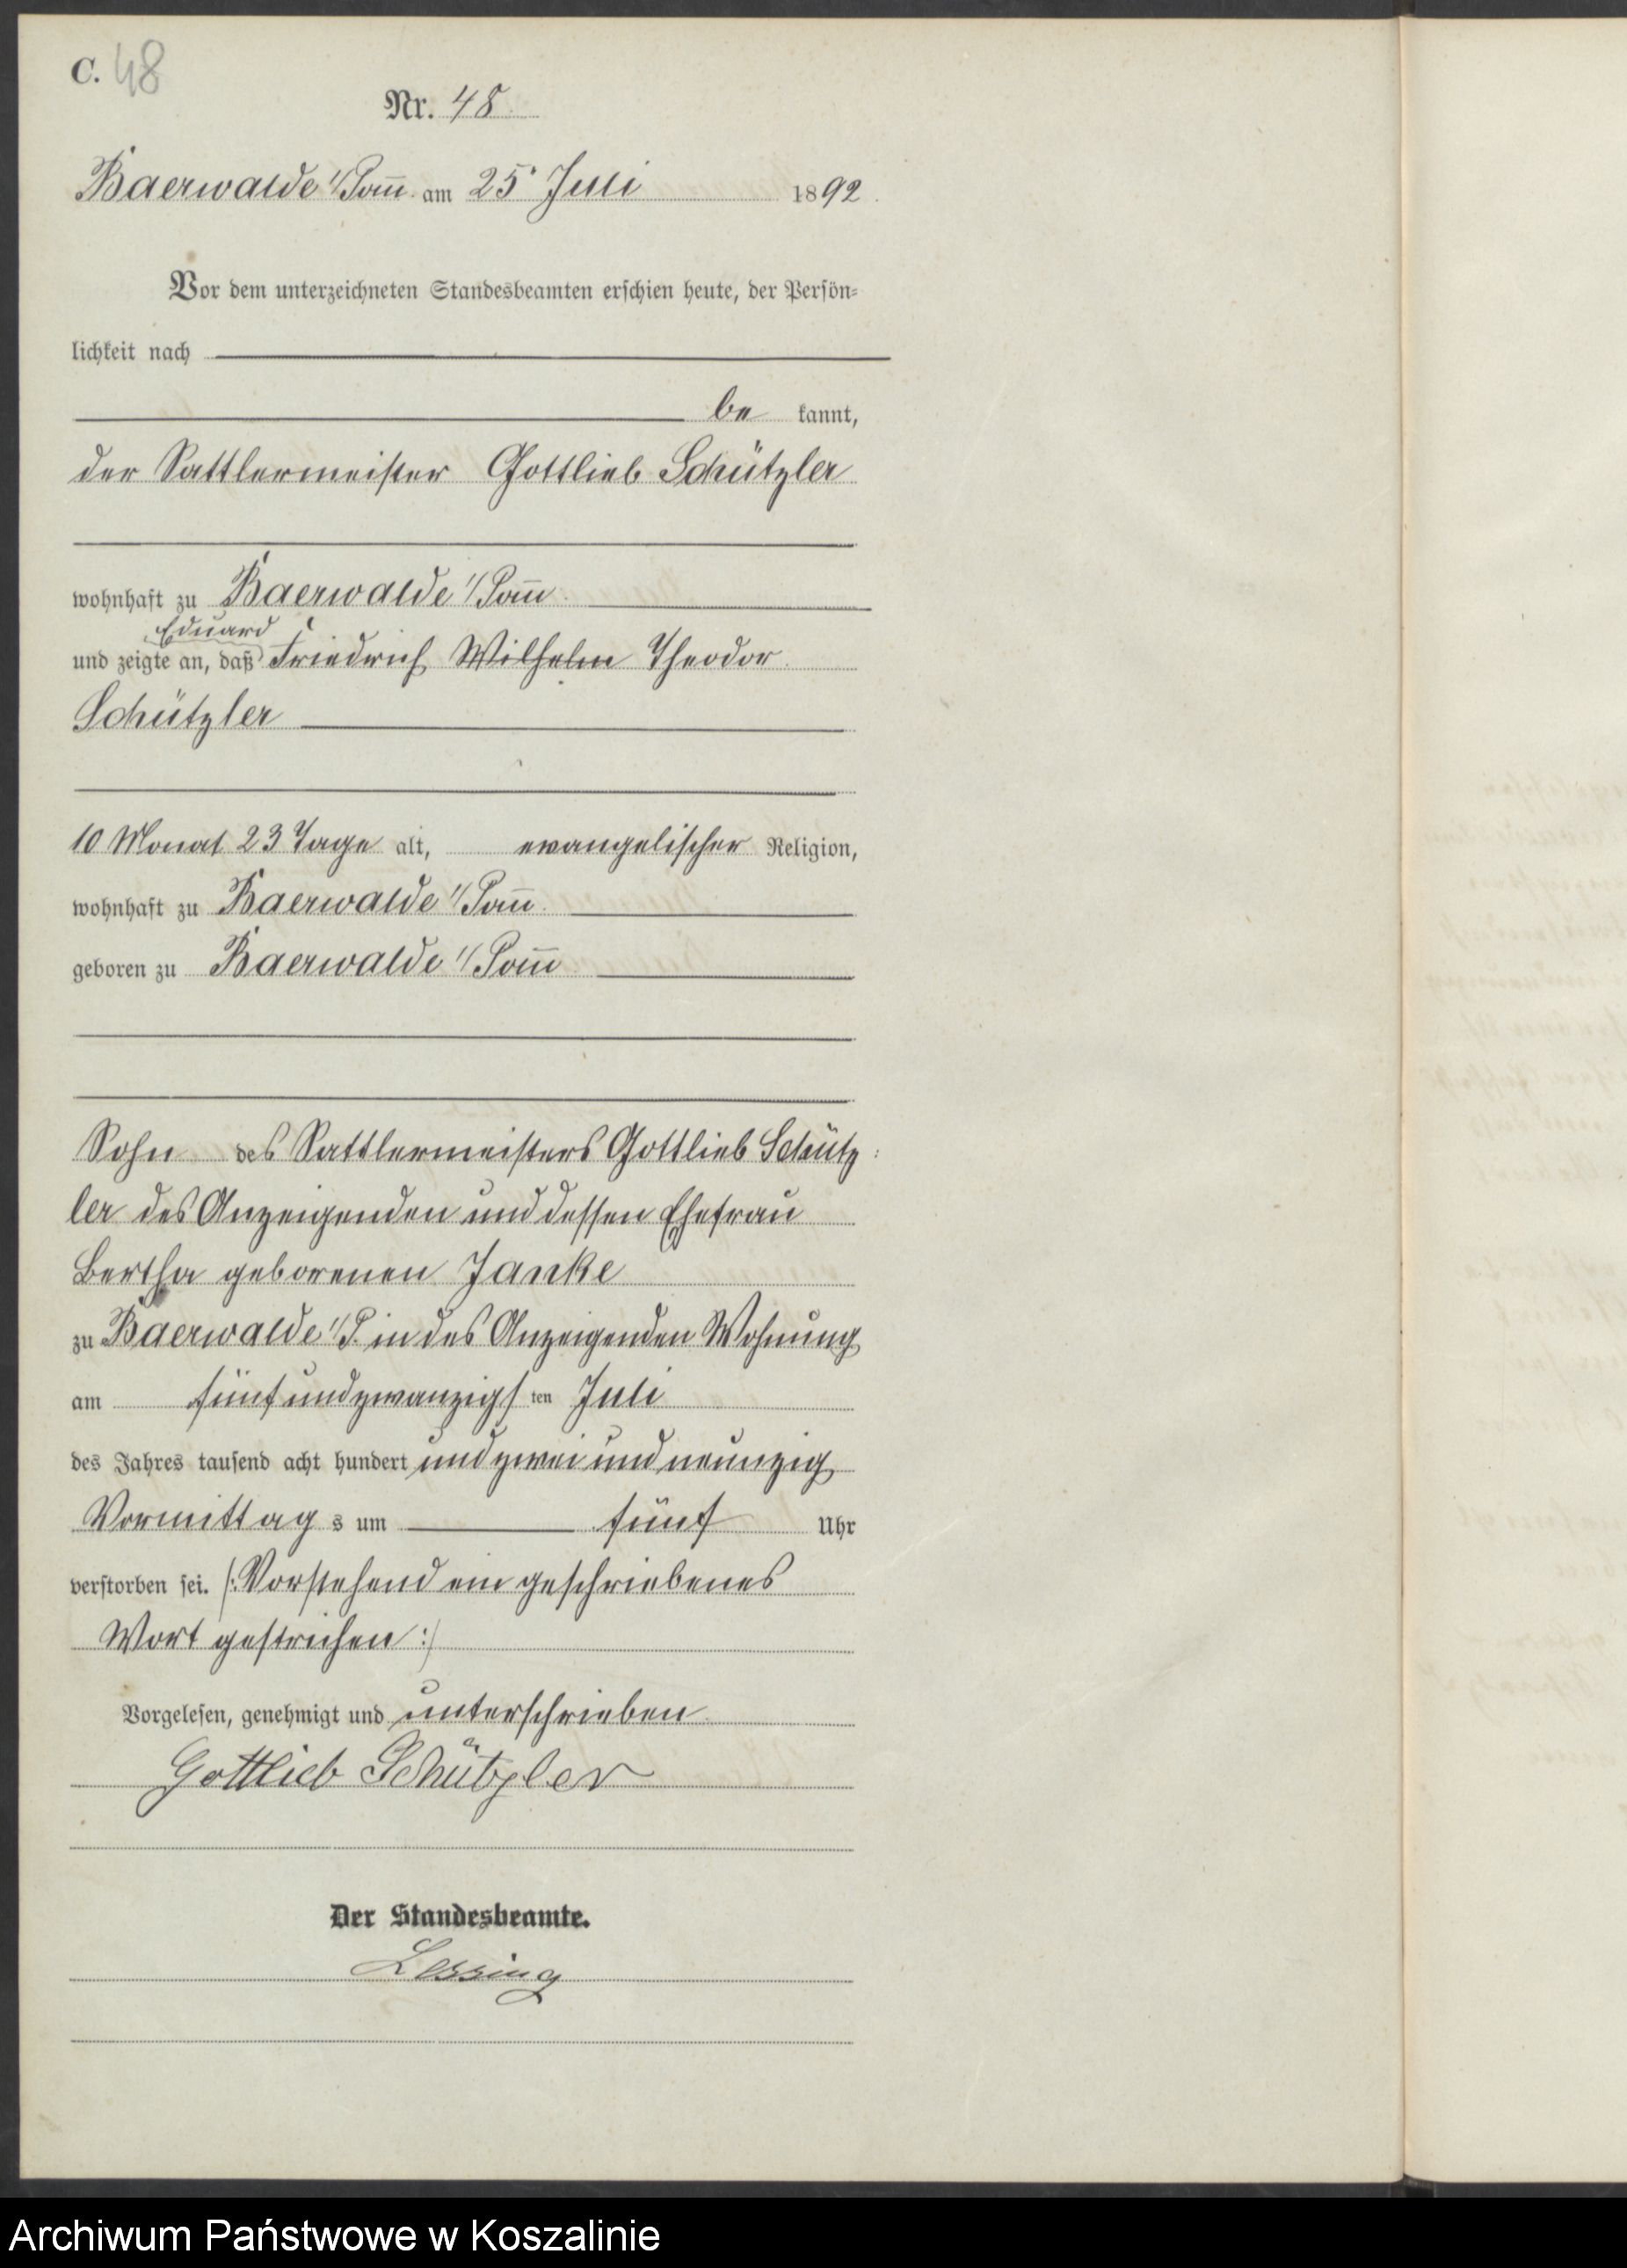 C. 48
Nr. 48
Baerwalde i/Pom̅. am 25 Juli 1892.
Vor dem unterzeichneten Standesbeamten erschien heute, der Persön-
lichkeit nach
be kannt,
der Sattlermeister Gottlieb Schützler
wohnhaft zu Baerwalde i/Pom̅.
Eduard
und zeigte an, daß Friedrich Wilhelm Theodor
Schützler
10 Monat 23 Tage alt, evangelischer Religion,
wohnhaft zu Baerwalde i/Pom̅.
geboren zu Baerwalde i/Pom̅
Sohn des Sattlermeisters Gottlieb Schütz:
ler des Anzeigenden und dessen Ehefrau
Bertha geborenen Janke
zu Baerwalde i/P. in des Anzeigenden Wohnung
am fünfundzwanzigs ten Juli
des Jahres tausend acht hundert und zwei und neunzig
Vormittag s um fünf Uhr
verstorben sei. /: Vorstehend ein geschriebenes
Wort gestrichen :/
Vorgelesen, genehmigt und unterschrieben
Gottlieb Schützler
Der Standesbeamte.
Lessing
Archiwum Państwowe w Koszalinie